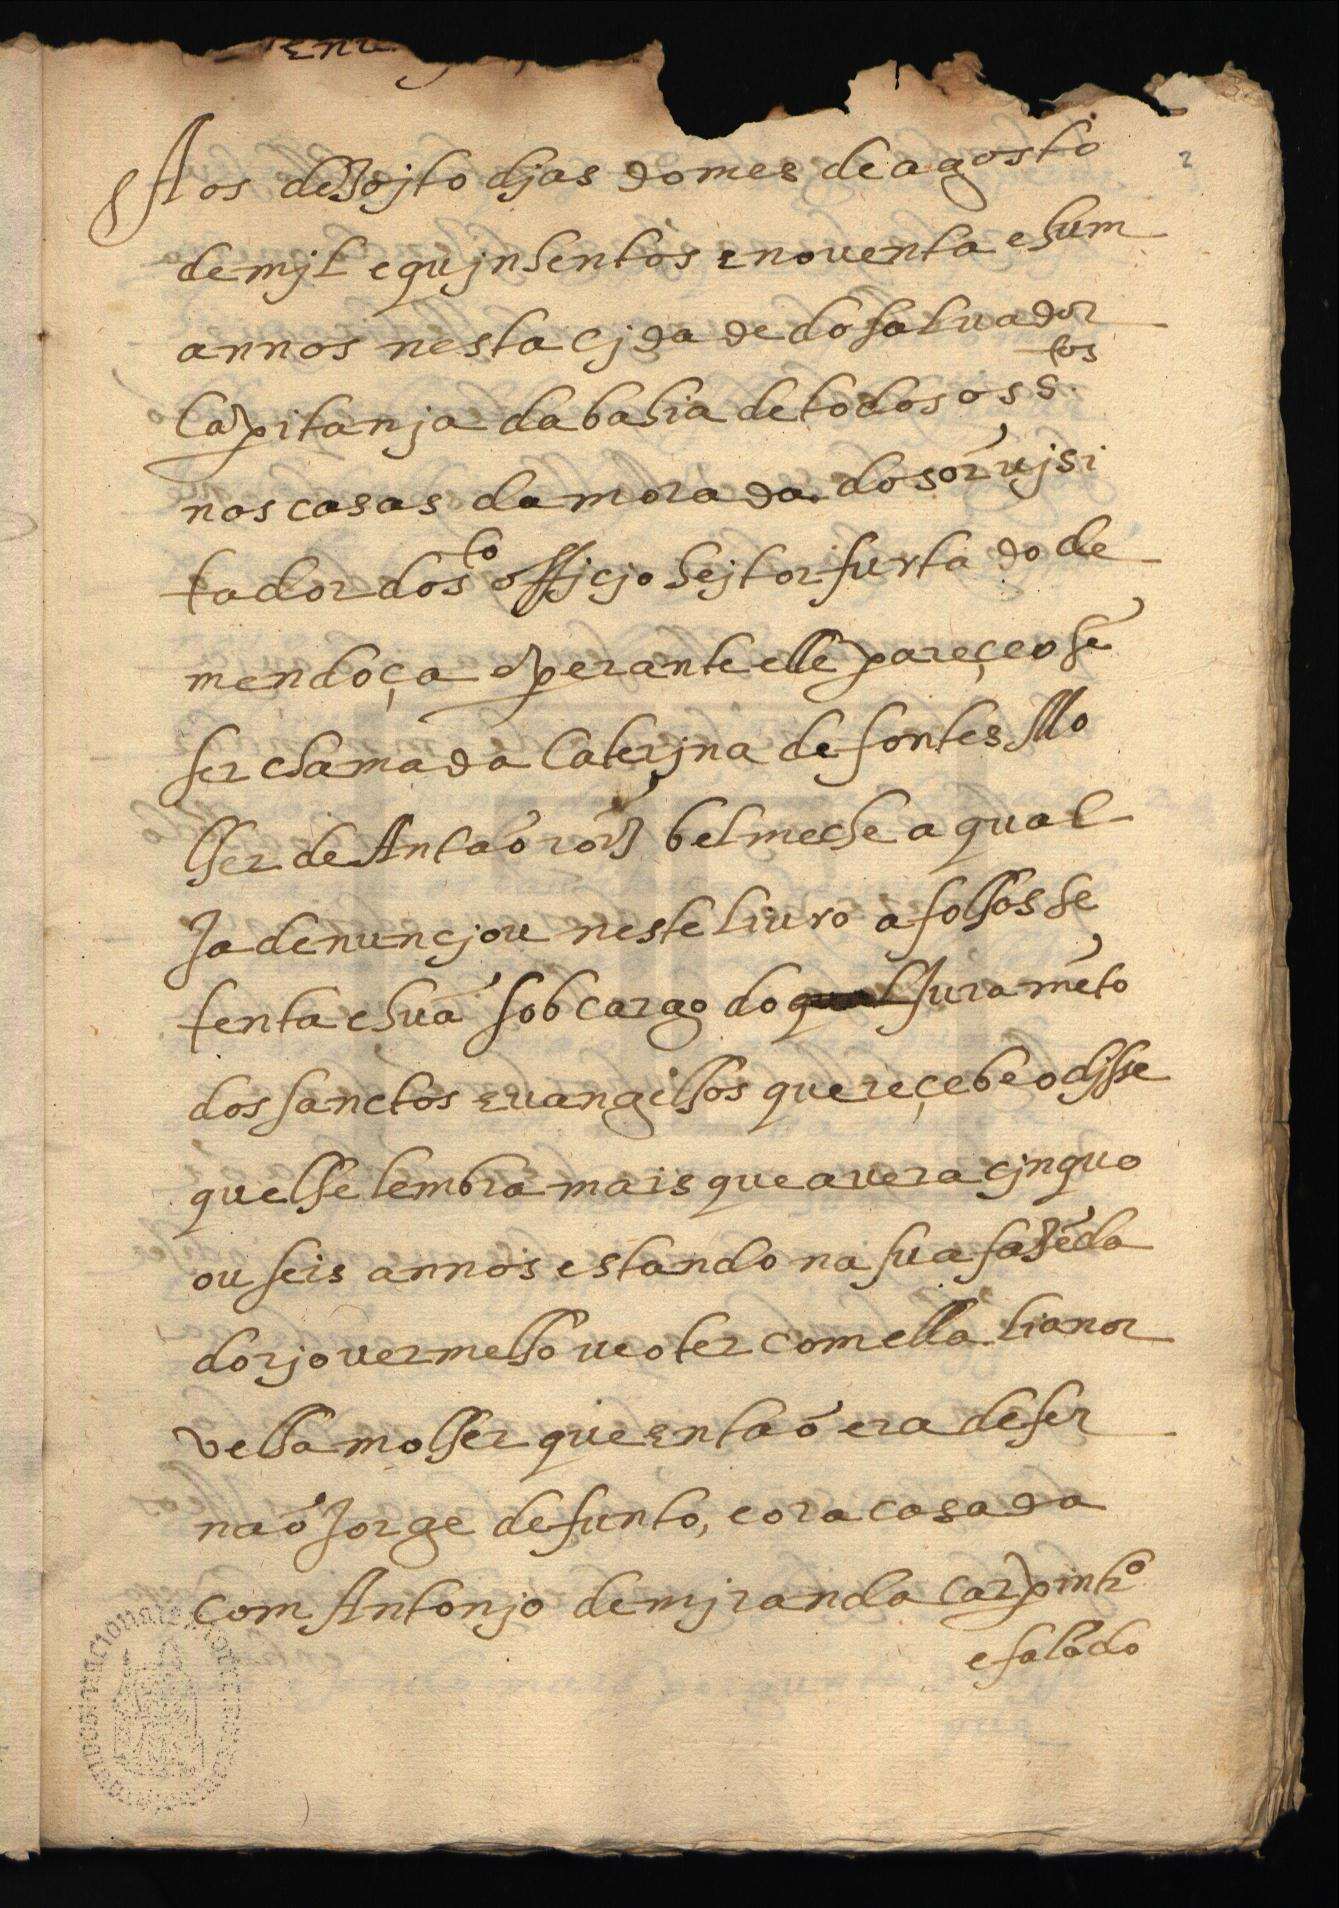 Aos dezojto djas do mes de agosto
de mjl e qujnhentos e noventa e hum
annos nesta cjdade do saluador
Capitanja da bahia de todos os s.tos
nas casas da morada do sõr vjsi
tador do s.to officjo heitor furtado de
mendoça perante elle pareçeo sẽ
ser chamada Caterjna de fontes mo
lher de Antaõ roĩz belmeche a qual
Ja denuncjou neste liuro a folhas se
tenta e huã sob cargo do qual Juramẽto
dos sanctos evangelhos que reçebeo djsse
que lhe lembra mais que avera cjnquo
ou seis annos estando na sua fazẽda
do rjo vermelho veo ter com ella lianor
velha molher que entaõ era de fer
naõ Jorge defunto, e ora casada
com Antonjo de mjranda carpintr.o
e falãdo